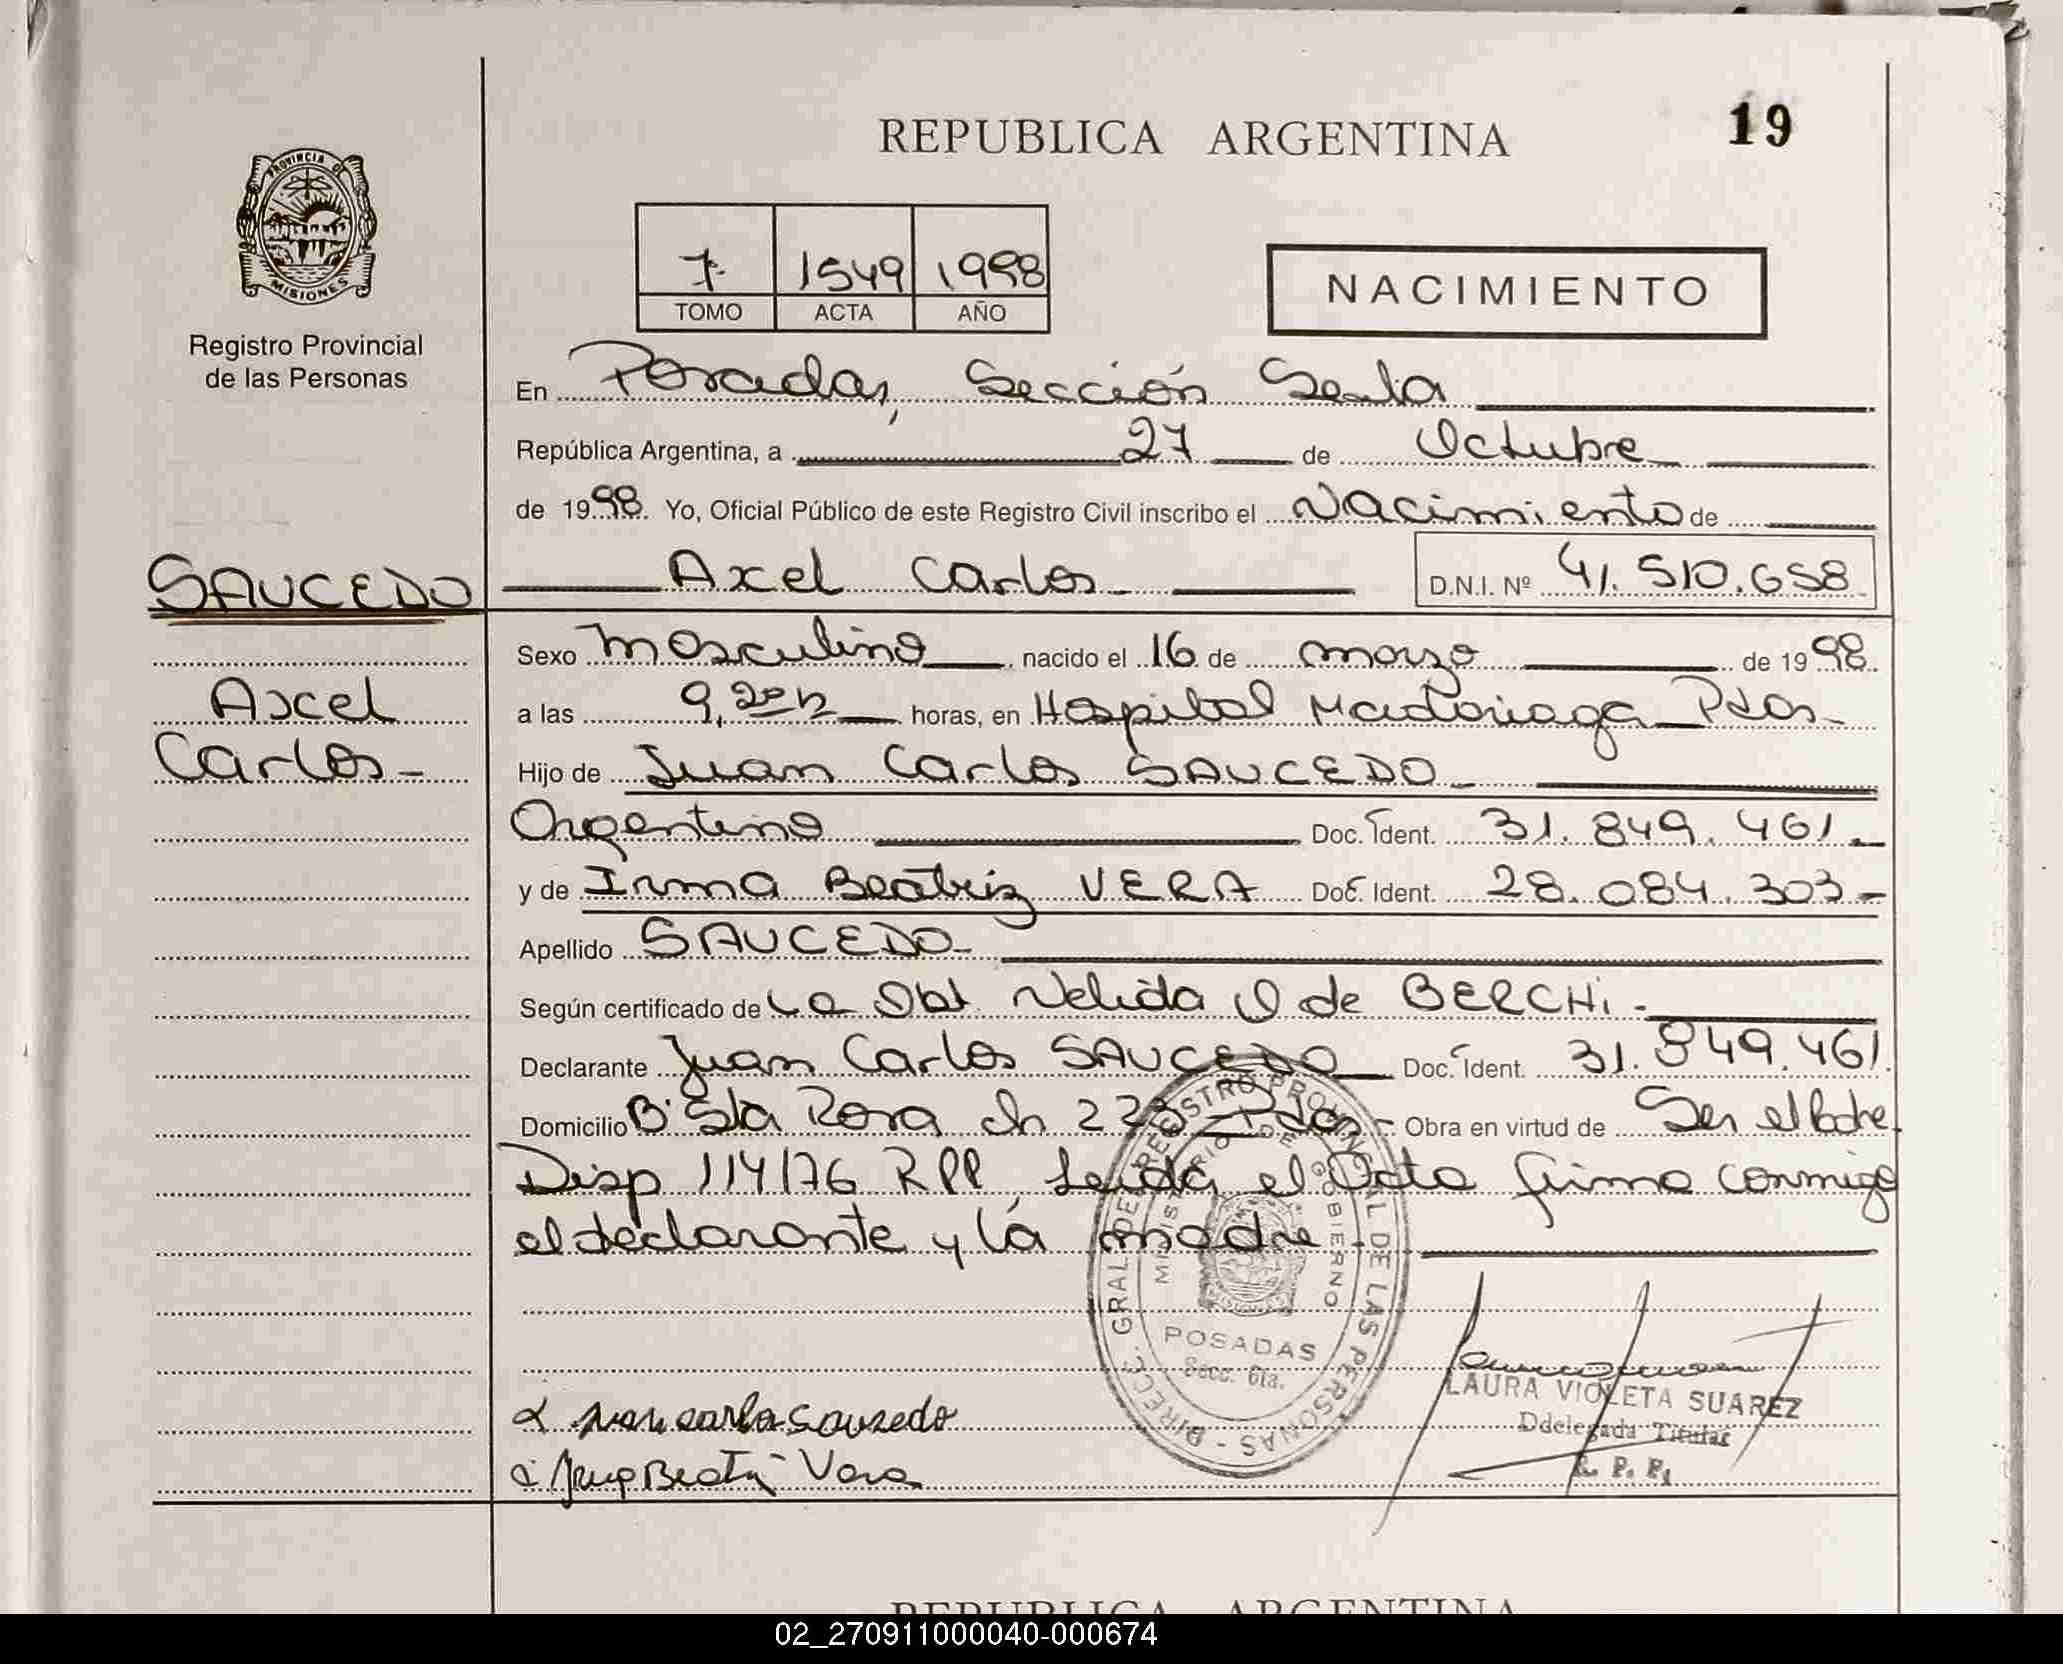 REPUBLICA ARGENTINA
19
PROVINCIA DE
MISIONES
Registro Provincial
de las Personas
7 1549 1998
TOMO ACTA AÑO
NACIMIENTO
En Posadas, Sección Sexta
República Argentina, a 27 de Octubre
de 1998. Yo, Oficial Público de este Registro Civil inscribo el Nacimiento de
SAUCEDO Axel Carlos D.N.I. Nº 41.510.658
Sexo masculino nacido el 16 de marzo de 1998
Axel a las 9,20 h horas, en Hospital Madariaga Pdas-
Carlos- Hijo de Juan Carlos SAUCEDO
Argentino Doc. Ident. 31.849.461-
y de Irma Beatriz VERA Doc. Ident. 28.084.303-
Apellido SAUCEDO-
Según certificado de La Obt Nelida O de BERCHI-
Declarante Juan Carlos SAUCEDO Doc. Ident. 31.849.461
Domicilio B° Sta Rosa ch Pdas- Obra en virtud de Ser el Padre
Disp 114/76 RPP, Leída el Acta firma conmigo
el declarante y la madre
DIRECC. GRAL DE REGISTRO PROVINCIAL DE LAS PERSONAS -
MINISTERIO DE GOBIERNO
POSADAS
Secc. 6ta.
LAURA VIOLETA SUAREZ
Ddelegada Titular
R. P. P.
Juan Carlos Saucedo
Beatri Vera
REPUBLICA ARGENTINA
02_270911000040-000674